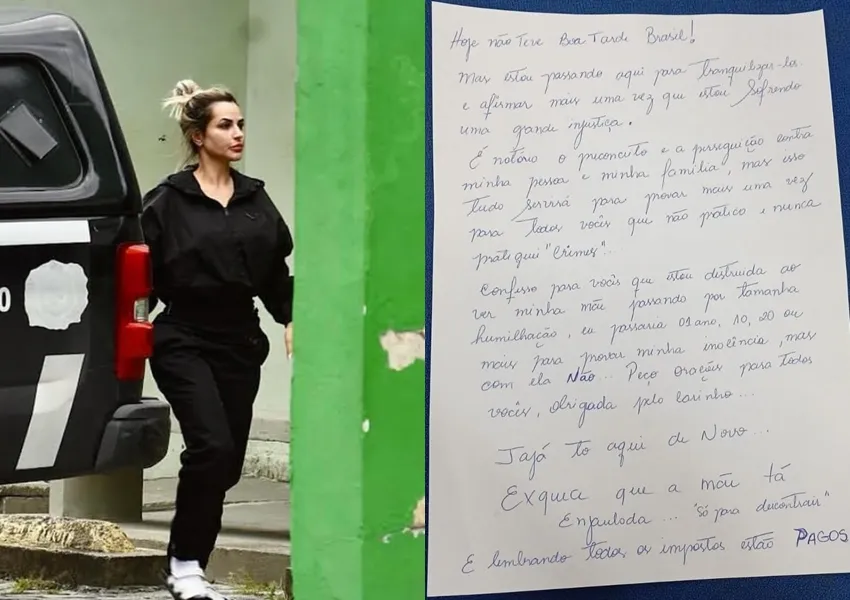 0
Hoje não teve Boa Tarde Brasil!
Mas estou passando aqui para tranquilizar-los
e afirmar mais uma vez que estou sofrendo
uma grande injustiça.
É notório o preconceito e a perseguição contra
minha pessoa e minha família, mas isso
tudo servirá para provar mais uma vez
para todos vocês que não pratico e nunca
pratiquei "Crimes"...
Confesso para vocês que estou destruida ao
ver minha mãe passando por tamanha
humilhação, eu passaria 01 ano, 10, 20 ou
mais para provar minha inocência, mas
com ela Não... Peço orações para todos
vocês, obrigada pelo carinho...
Jajá to aqui de Novo...
Exquece que a mãe tá
Enjaulada... "só para descontrair"
E lembrando todos os impostos estão PAGOS